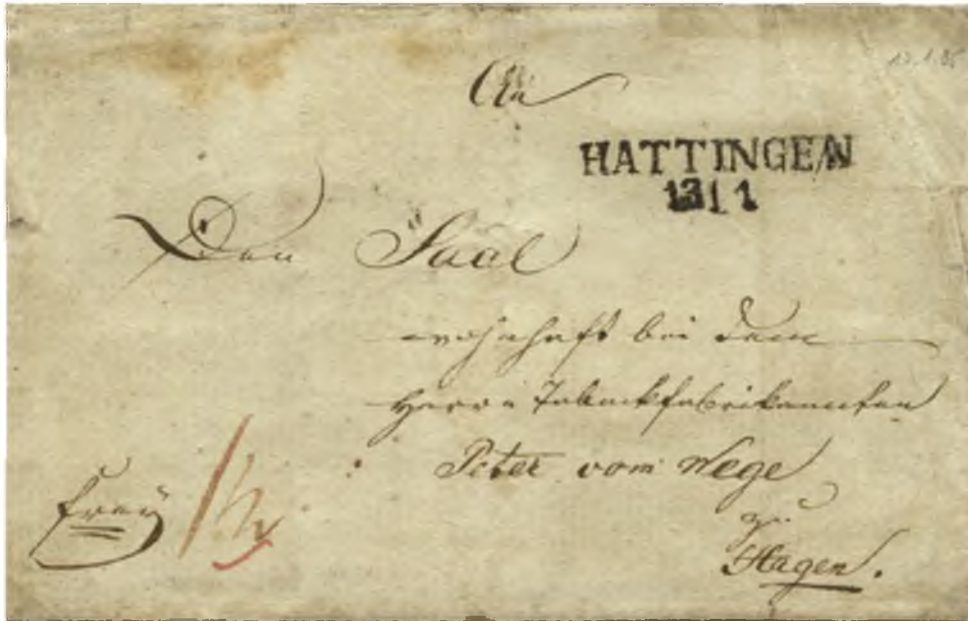 An
HATTINGEN
13|1
Den Saal
wohnhaft bei dem
Herrn Tabackfabrikanten
Peter vom Wege
zu
Hagen.
frey